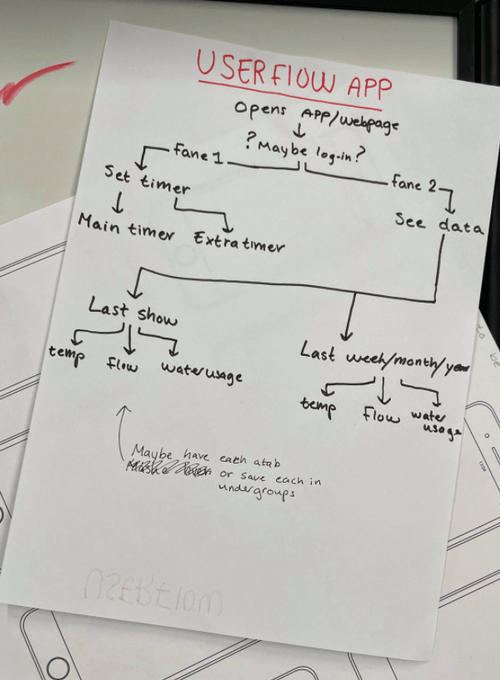 USERFLOW APP
Opens APP/webpage
? Maybe log-in?
Fane 1
Fane 2
Set timer
See data
Main timer Extra timer
Last show
Last week/month/year
temp flow waterusage
temp flow water usage
Maybe have each a tab
or save each in
undergroups
to be